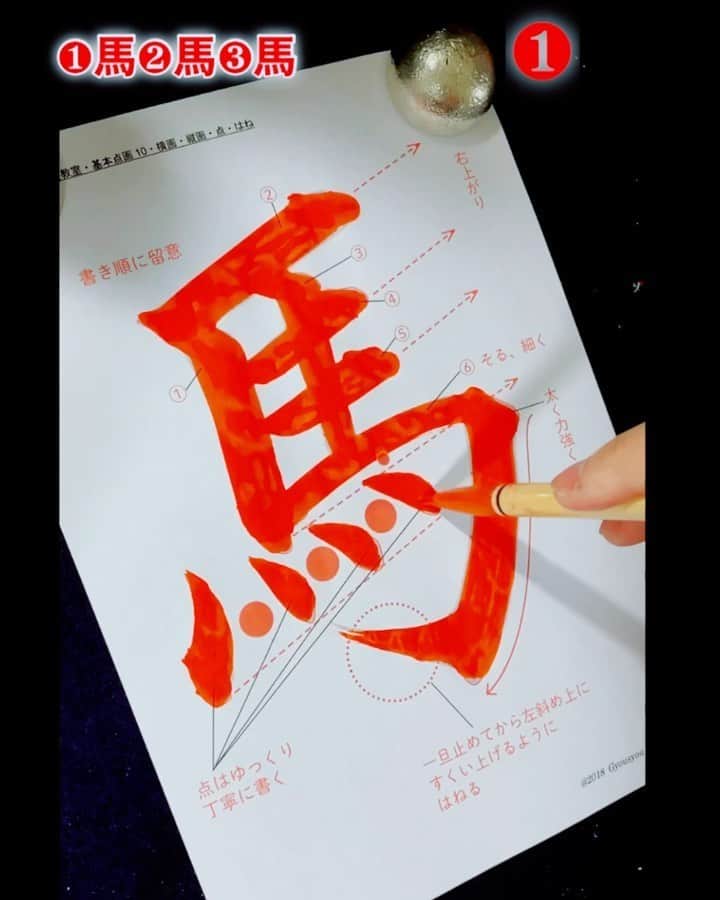 ❶馬❷馬❸馬
❶
教室・基本点画10・横画・縦画・点・はね
書き順に留意
右上がり
②
③
④
⑤
①
⑥ そる、細く
太く力強く
馬
点はゆっくり
丁寧に書く
一旦止めてから左斜め上に
すくい上げるように
はねる
@2018 Gyousyou